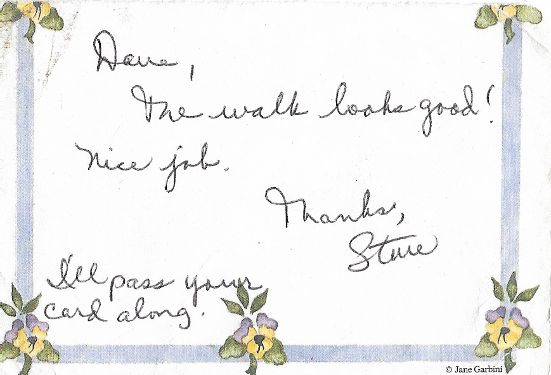 Dave,
The walk looks good!
Nice job.
Thanks,
Steve
I'll pass your
card along.
© Jane Garbini